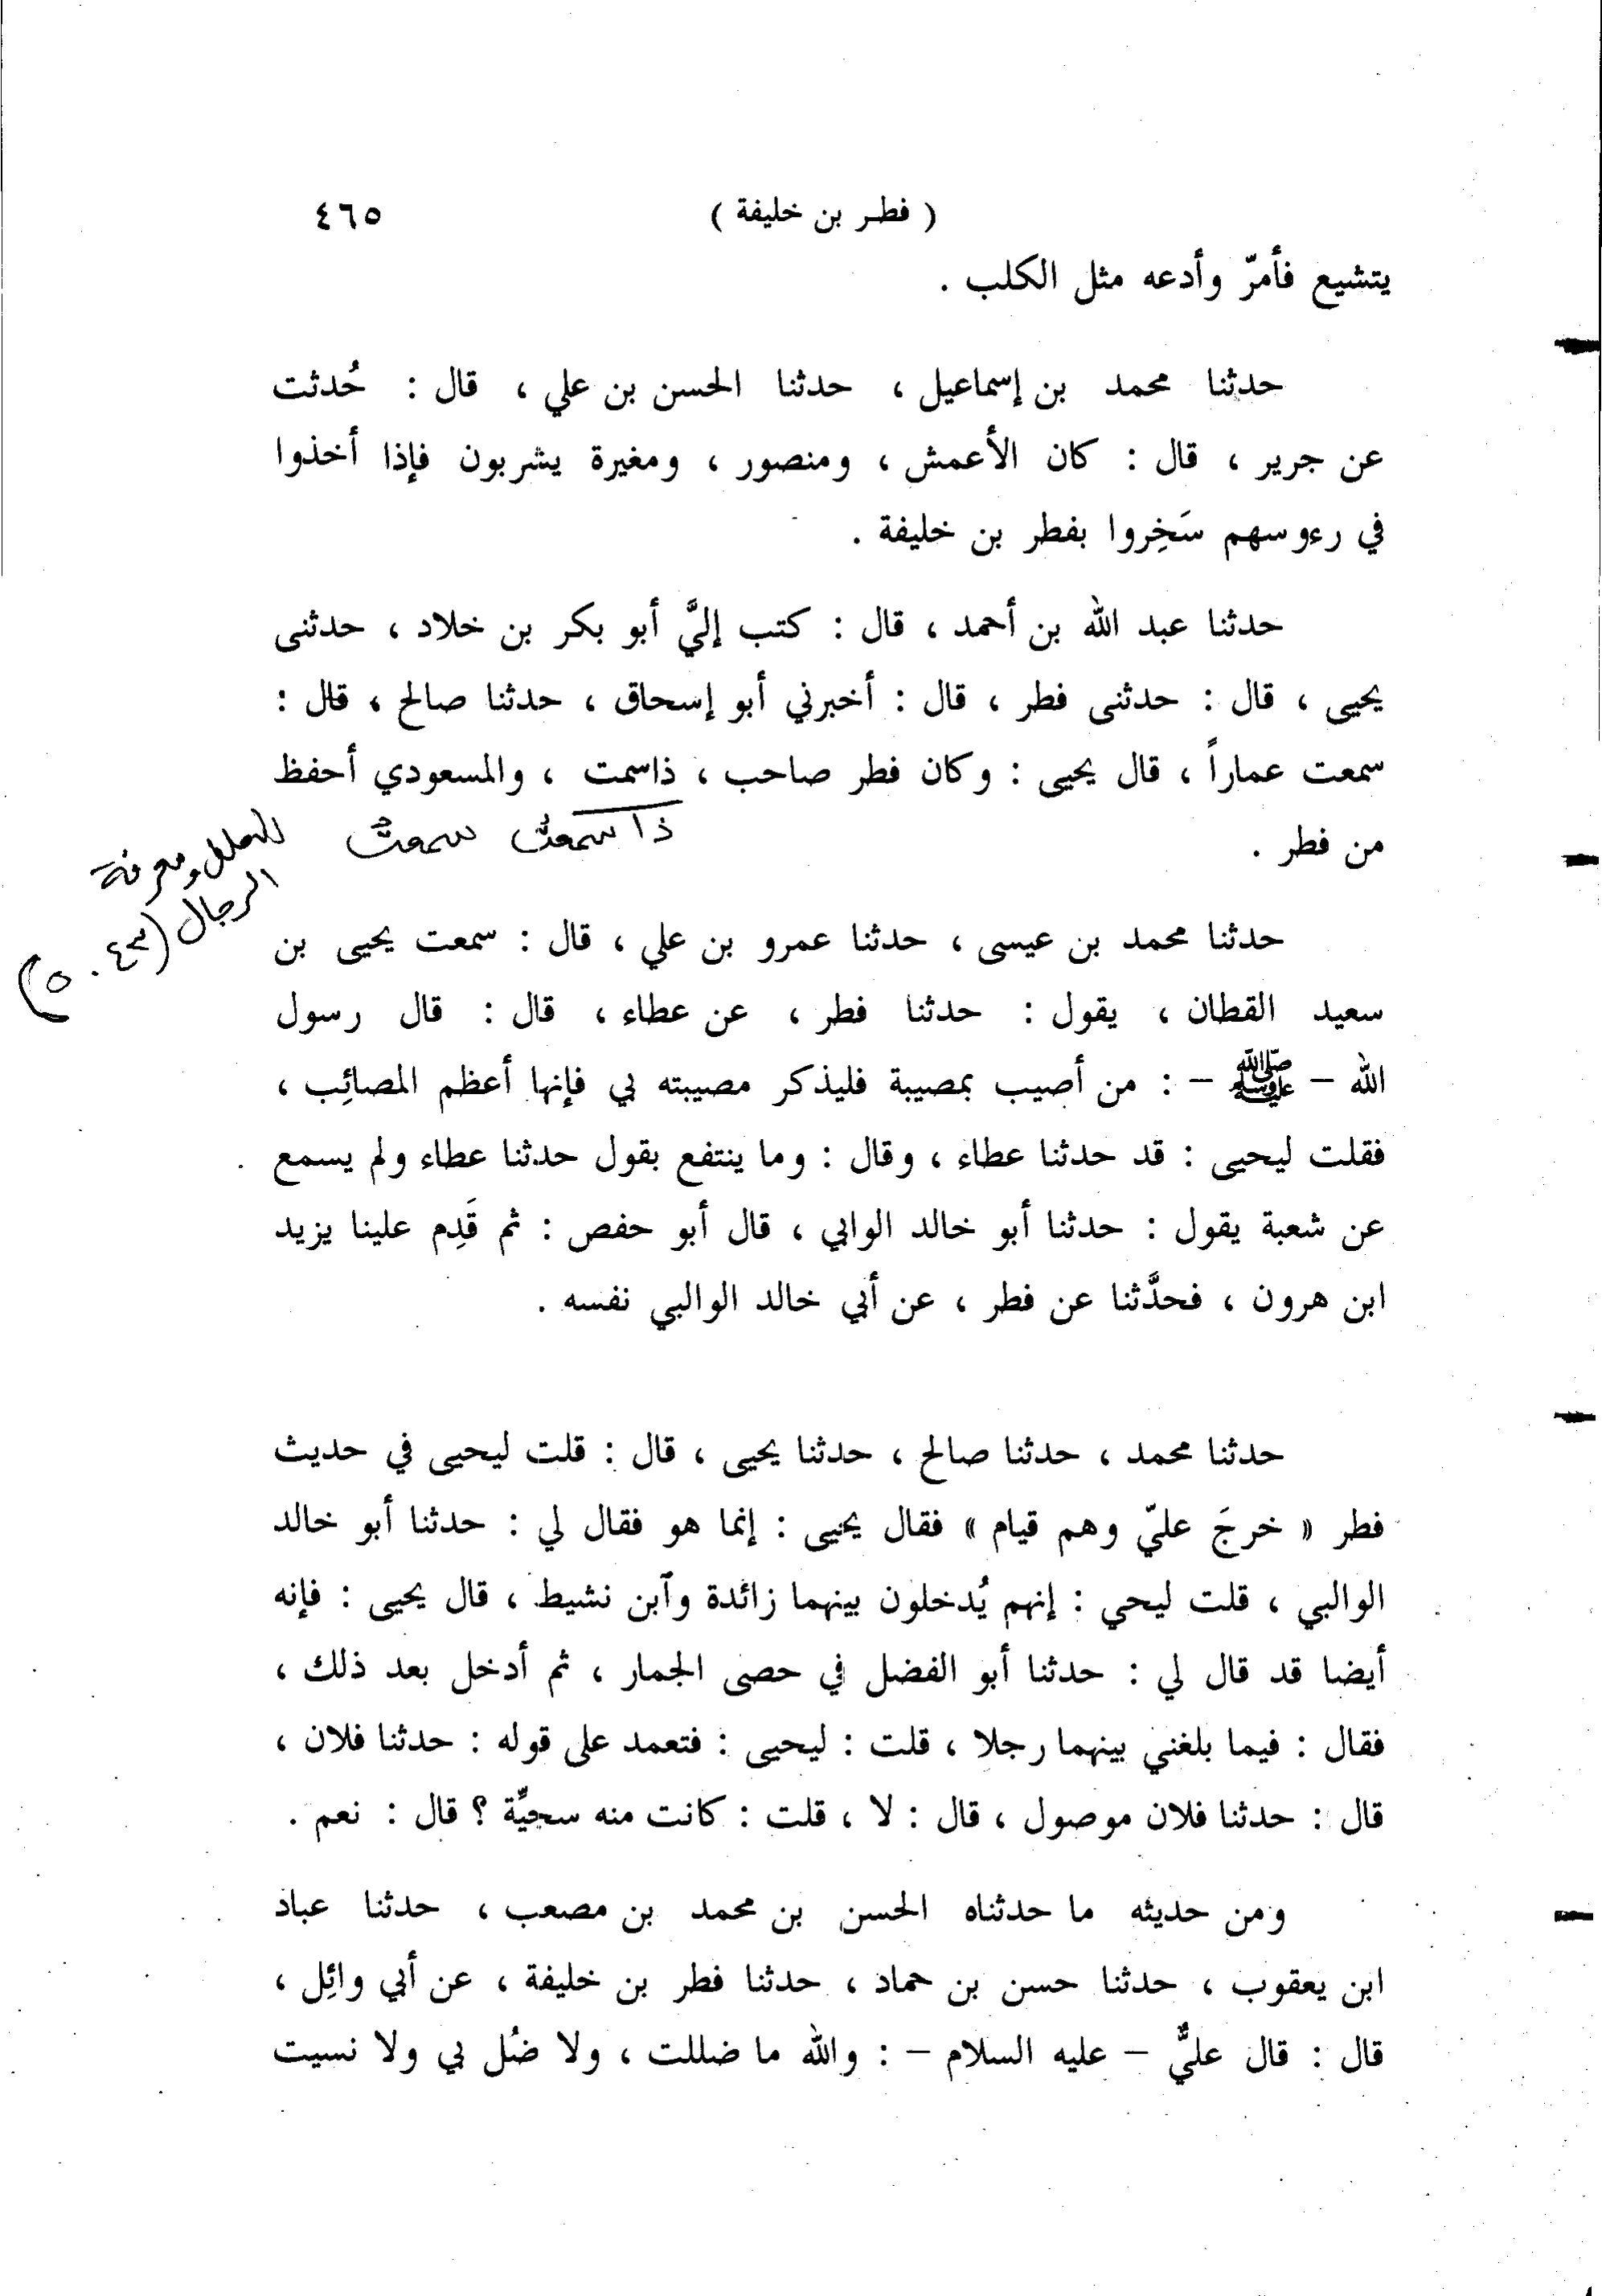 ( فطر بن خليفة ) ٤٦٥
يتشيع فأمرّ وأدعه مثل الكلب .
حدثنا محمد بن إسماعيل ، حدثنا الحسن بن علي ، قال : حُدثت
عن جرير ، قال : كان الأعمش ، ومنصور ، ومغيرة يشربون فإذا أخذوا
في رءوسهم سَخِروا بفطر بن خليفة .
حدثنا عبد الله بن أحمد ، قال : كتب إليَّ أبو بكر بن خلاد ، حدثنى
يحيى ، قال : حدثنى فطر ، قال : أخبرني أبو إسحاق ، حدثنا صالح ، قال :
سمعت عماراً ، قال يحيى : وكان فطر صاحب ، ذاسمت ، والمسعودي أحفظ
ذا سمعتُ سمعتُ
من فطر .
للعلل ومعرفة
الرجال (٥٠٤٣)
حدثنا محمد بن عيسى ، حدثنا عمرو بن علي ، قال : سمعت يحيى بن
سعيد القطان ، يقول : حدثنا فطر ، عن عطاء ، قال : قال رسول
الله – ﷺ – : من أصيب بمصيبة فليذكر مصيبته بي فإنها أعظم المصائِب ،
فقلت ليحيى : قد حدثنا عطاء ، وقال : وما ينتفع بقول حدثنا عطاء ولم يسمع
عن شعبة يقول : حدثنا أبو خالد الوابي ، قال أبو حفص : ثم قَدِم علينا يزيد
ابن هرون ، فحدَّثنا عن فطر ، عن أبي خالد الوالبي نفسه .
حدثنا محمد ، حدثنا صالح ، حدثنا يحيى ، قال : قلت ليحيى في حديث
فطر « خرجَ عليّ وهم قيام » فقال يحيى : إنما هو فقال لي : حدثنا أبو خالد
الوالبي ، قلت ليحي : إنهم يُدخلون بينهما زائدة وآبن نشيط ، قال يحيى : فإنه
أيضا قد قال لي : حدثنا أبو الفضل في حصى الجمار ، ثم أدخل بعد ذلك ،
فقال : فيما بلغني بينهما رجلا ، قلت : ليحيى : فتعمد على قوله : حدثنا فلان ،
قال : حدثنا فلان موصول ، قال : لا ، قلت : كانت منه سجيَّة ؟ قال : نعم .
ومن حديثه ما حدثناه الحسن بن محمد بن مصعب ، حدثنا عباد
ابن يعقوب ، حدثنا حسن بن حماد ، حدثنا فطر بن خليفة ، عن أبي وائِل ،
قال : قال عليٌّ – عليه السلام – : والله ما ضللت ، ولا ضُل بي ولا نسيت